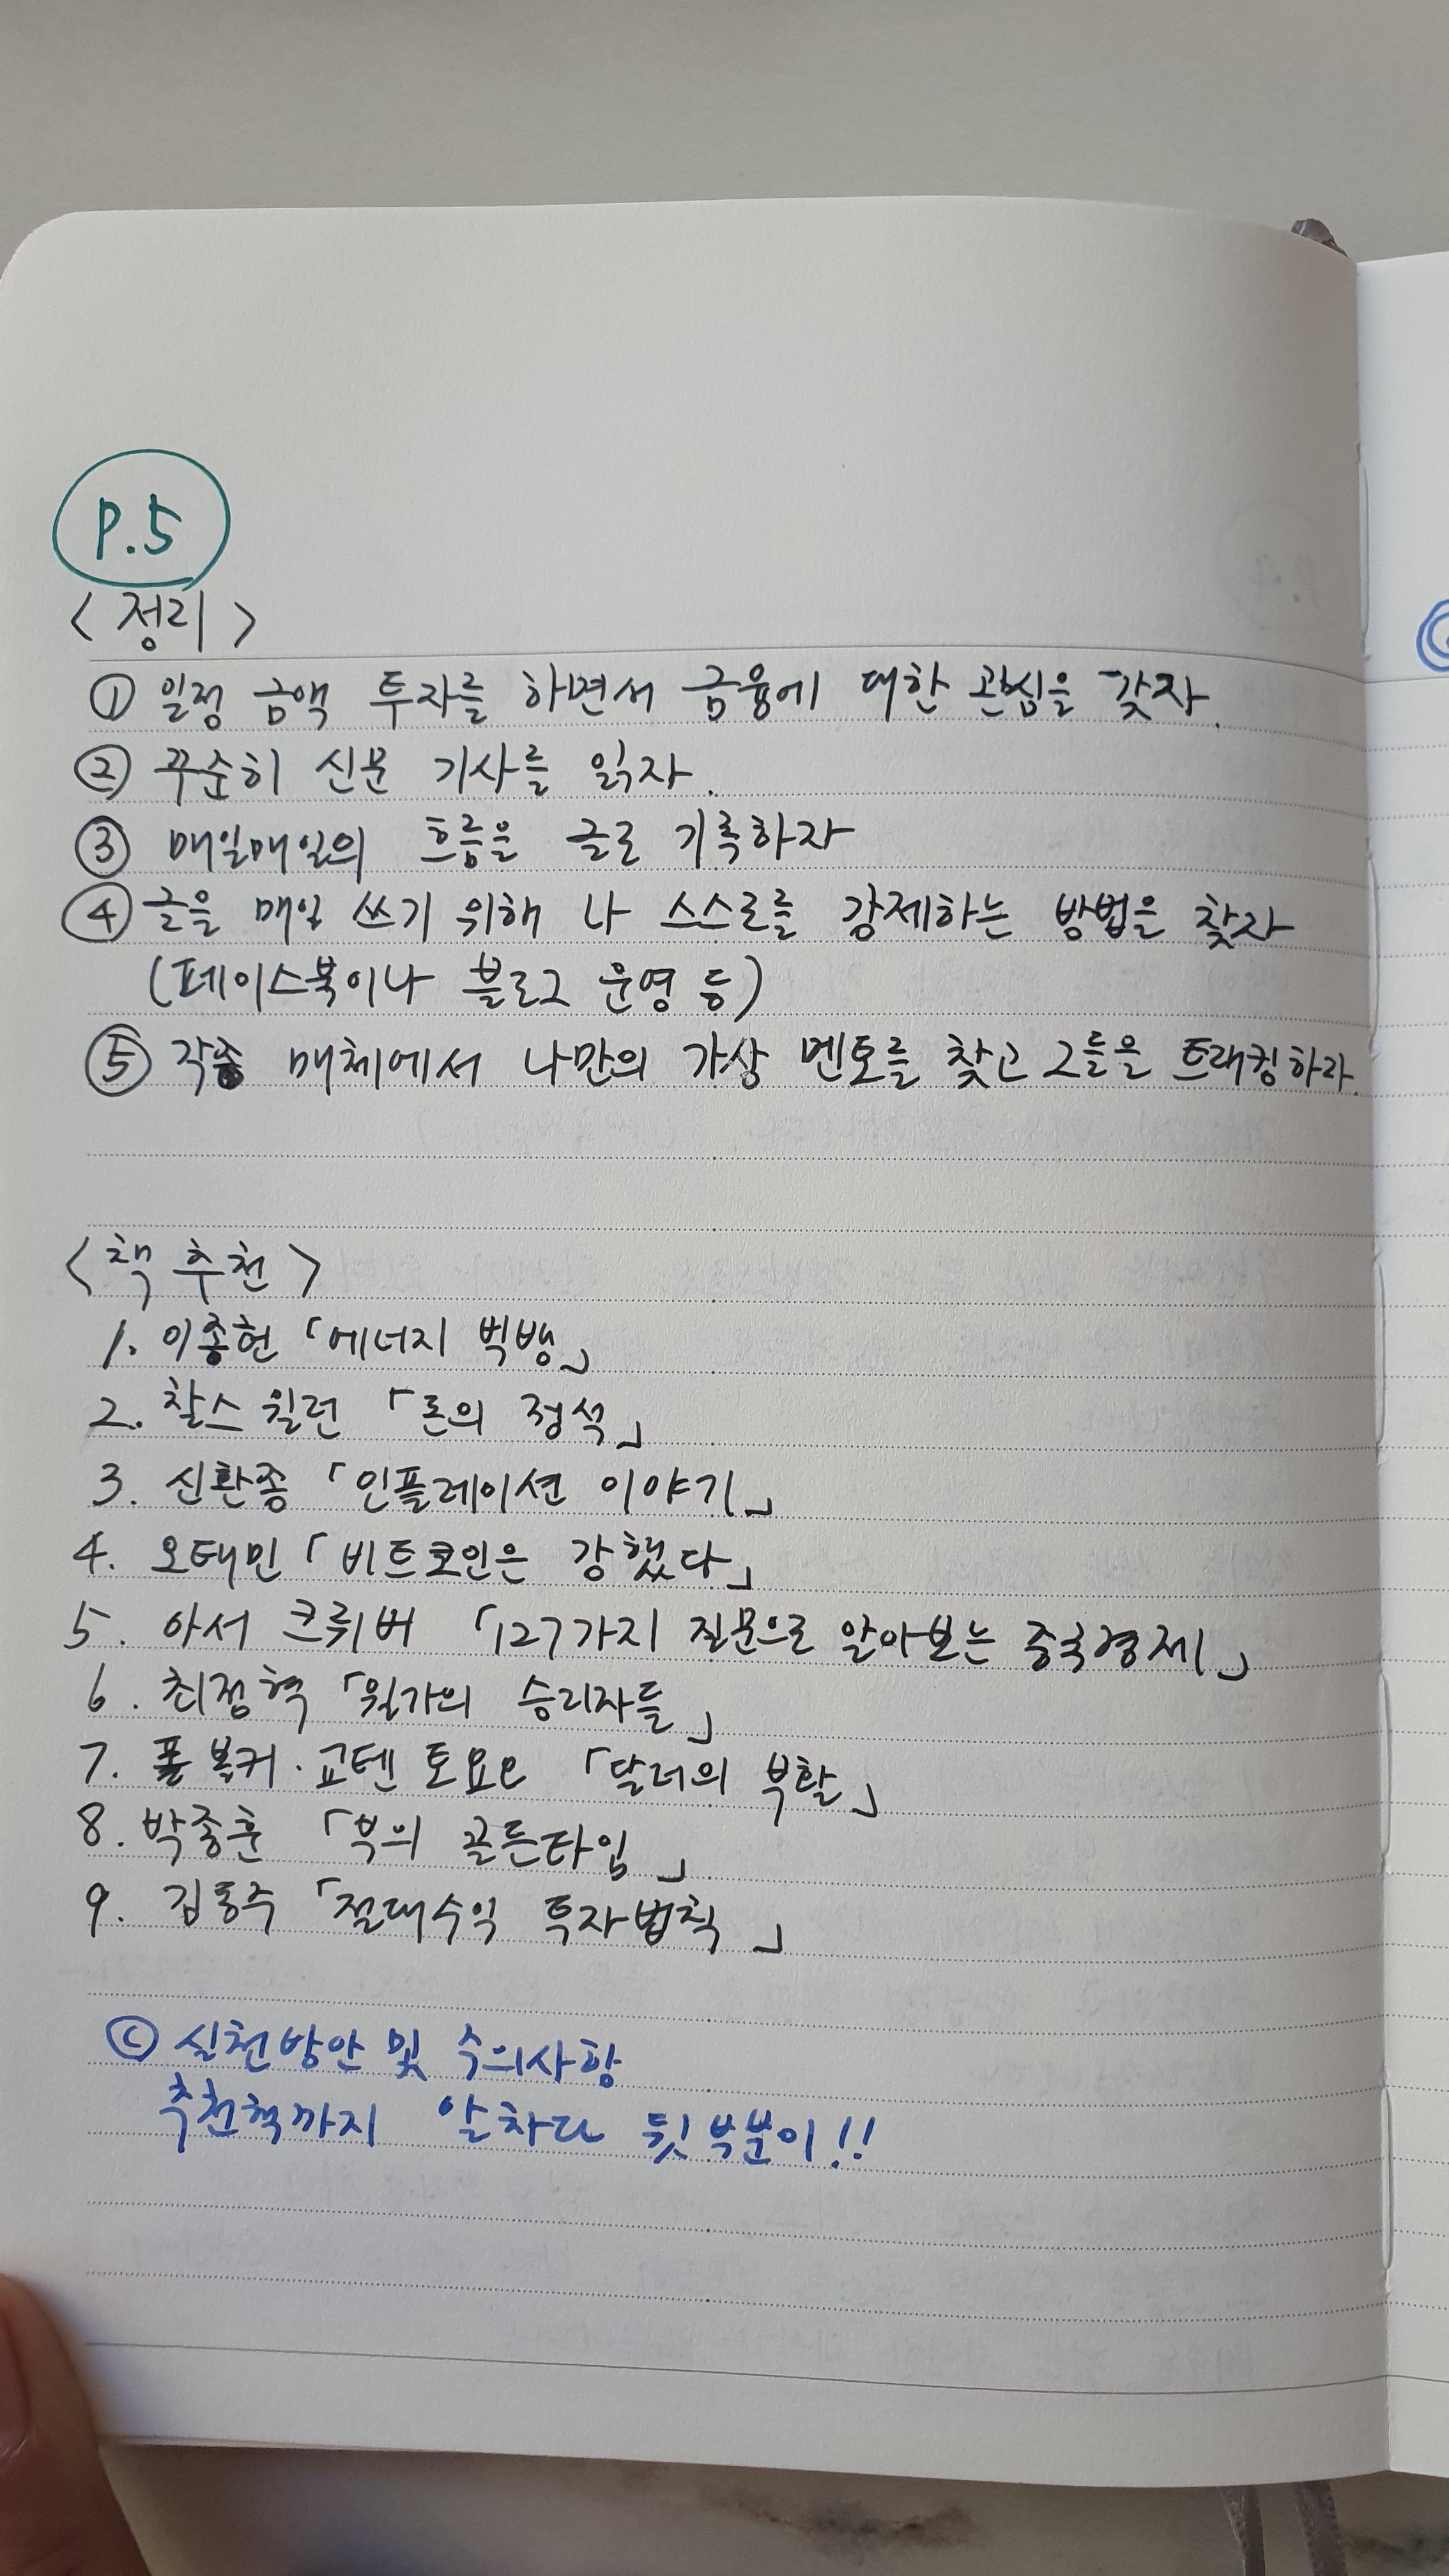 P.5
< 정리 >
① 일정 금액 투자를 하면서 금융에 대한 관심을 갖자.
② 꾸준히 신문 기사를 읽자.
③ 매일매일의 흐름을 글로 기록하자
④ 글을 매일 쓰기 위해 나 스스로를 강제하는 방법을 찾자
(페이스북이나 블로그 운영 등)
⑤ 각종 매체에서 나만의 가상 멘토를 찾고 그들을 트래킹하라.
< 책 추천 >
1. 이종헌 「에너지 빅뱅」
2. 찰스 윌런 「돈의 정석」
3. 신환종 「인플레이션 이야기」
4. 오태민 「비트코인은 강했다」
5. 아서 크뢰버 「127가지 질문으로 알아보는 중국경제」
6. 최정혁 「월가의 승리자들」
7. 폴 볼커·교텐 토요오 「달러의 부활」
8. 박종훈 「부의 골든타임」
9. 김동주 「절대수익 투자법칙」
ⓒ 실천방안 및 주의사항
추천책까지 알차다 뒷 부분이!!